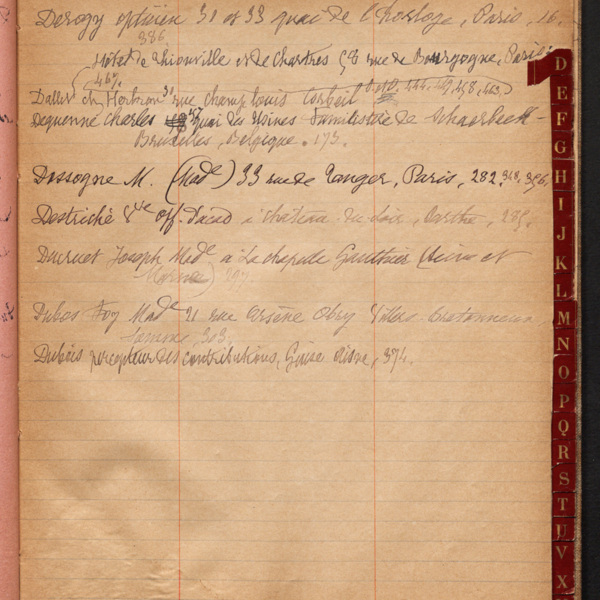 Derogy opticien 31 et 33 quai de l'horloge, Paris, 16.
386
Hôtel de Thionville et de Chartres 58 rue de Bourgogne, Paris.
467.
Dallet ch. 30 rue champ louis Corbeil 444. 458, 463.
Dequenne Charles quai des Usines Schaerbeek-
Bruxelles, Belgique. 173.
Dassogne M. (Made) 33 rue de Tanger, Paris, 282, 348. 356.
Destriché Vve off. d'acad à Chateau du Loir, Sarthe, 285.
Joseph Made à La chapelle Gauthier (Seine et
Marne) 297.
Dubos Foy Made 21 rue Arsène Obry Villers-Bretonneux
Somme, 303.
Dubois percepteur des contributions, Guise Aisne, 374.
D
E
F
G
H
I
J
K
L
M
N
O
P
Q
R
S
T
U
V
X